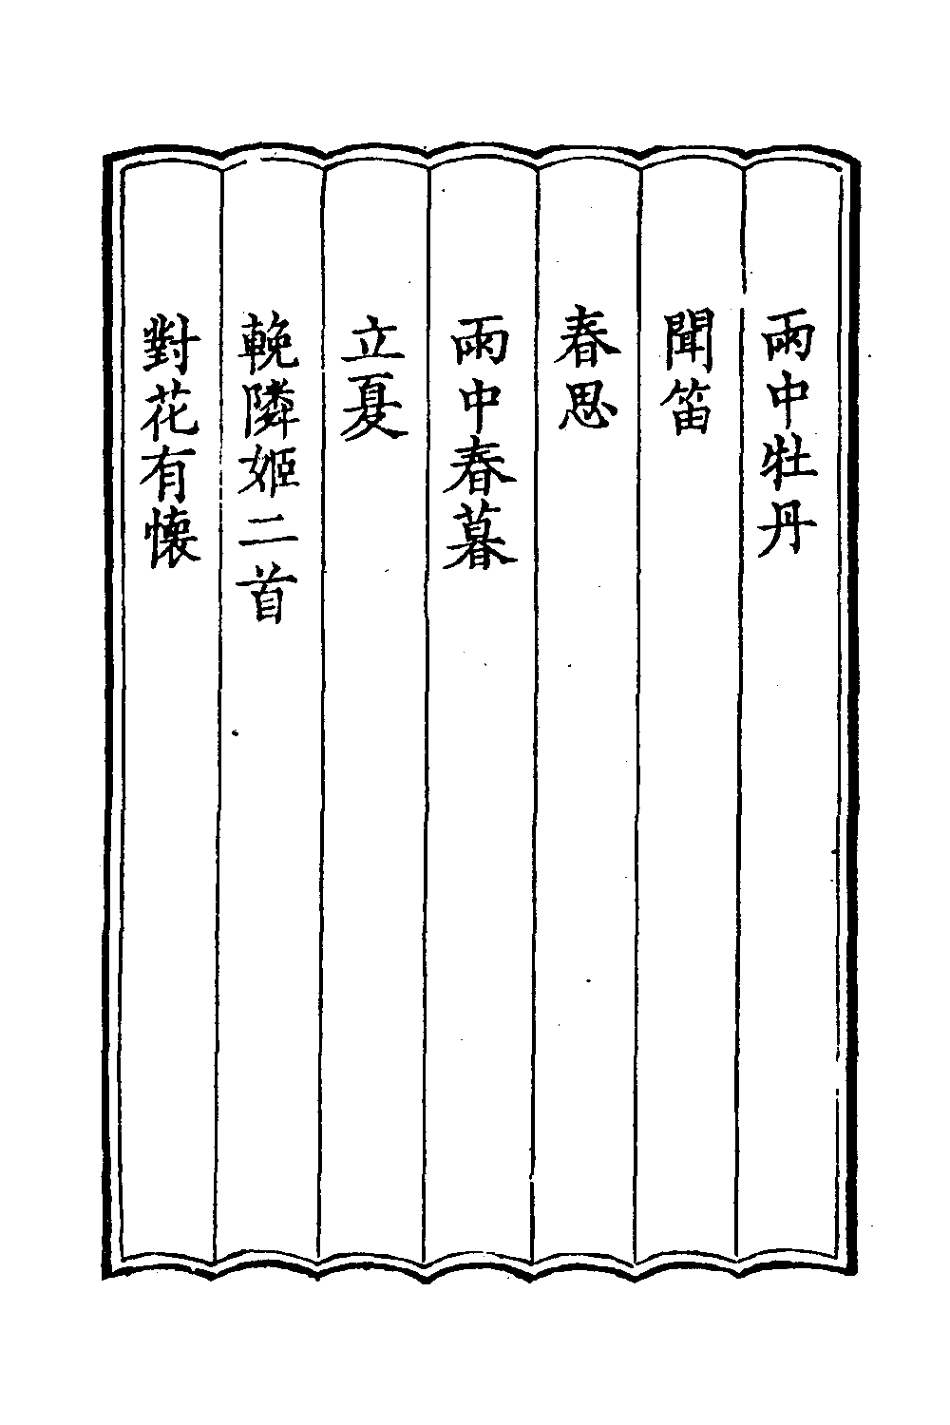 雨中牡丹
聞笛
春思
雨中春暮
立夏
輓隣姬二首
對花有懐